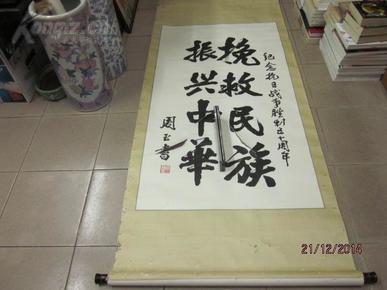 纪念抗日战争胜利五十周年
挽救民族
振兴中华
周玉书
21/12/2014